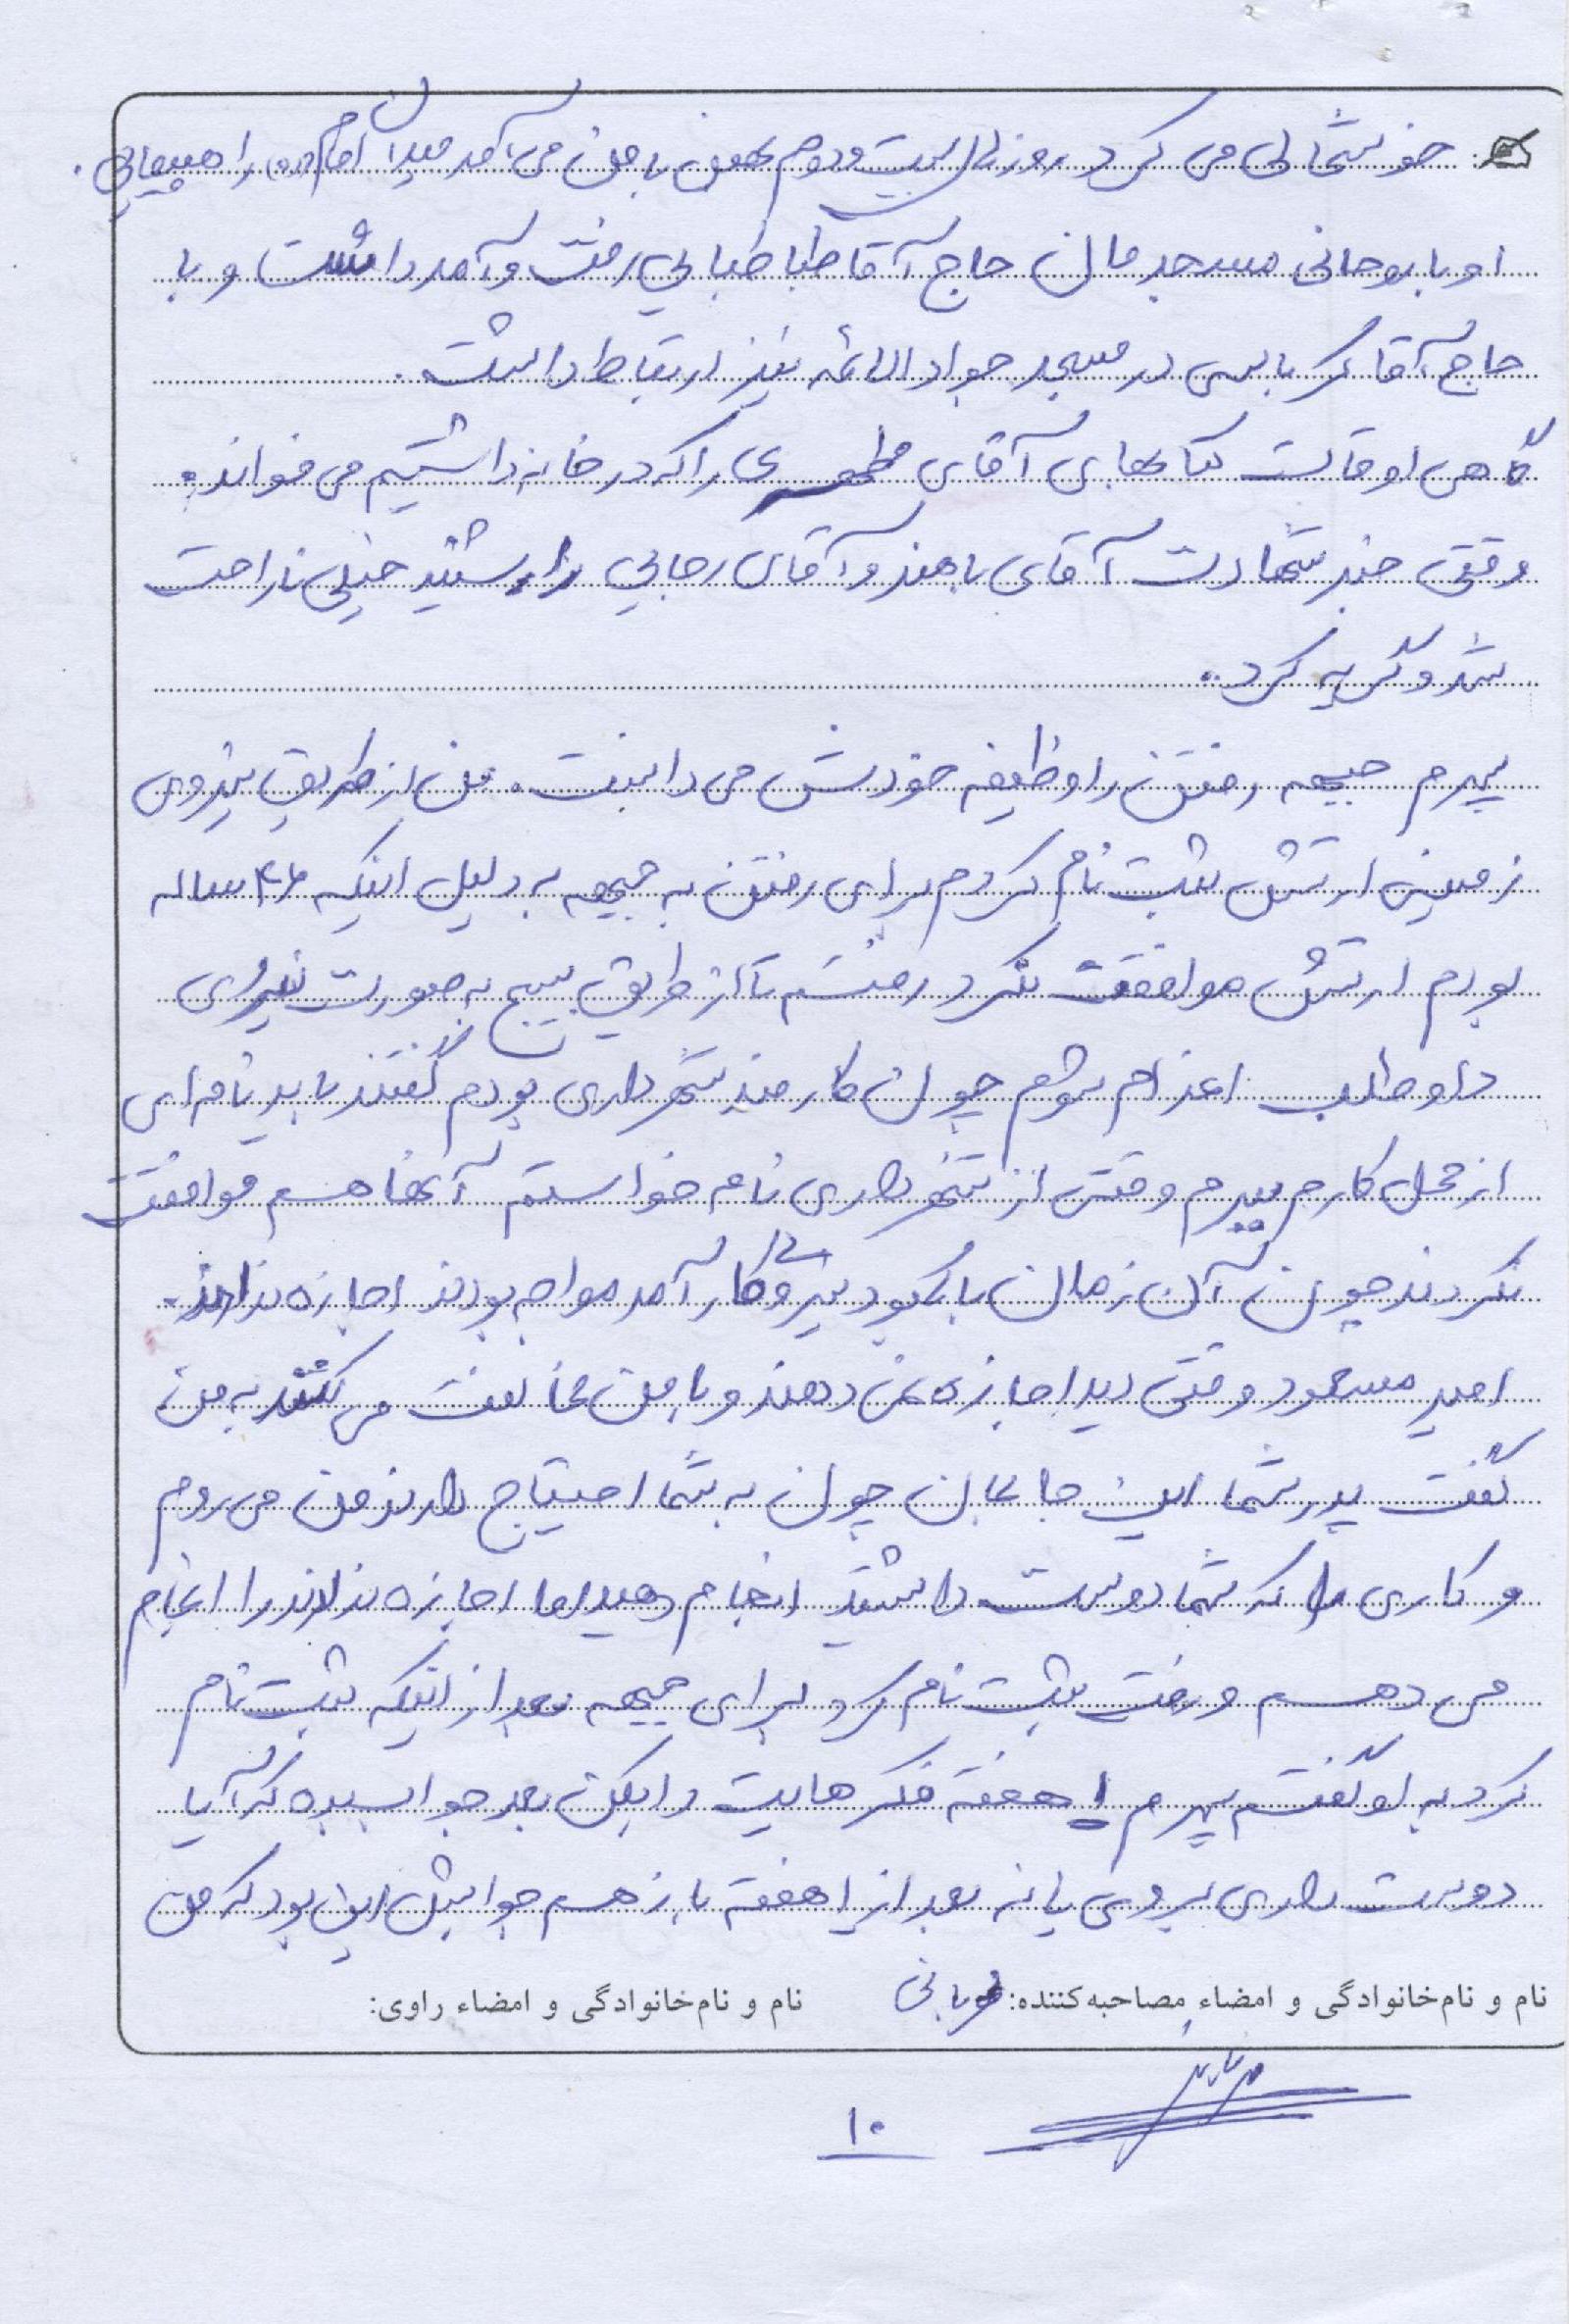 خوشحالی می کرد روز بیست و دوم بهمن با من می آمد میدان امام (ره) راهپیمایی.
او با روحانی مسجدمان حاج آقا طباطبایی رفت و آمد داشت و با
حاج آقا کرباسی در مسجد جواد الائمه نیز ارتباط داشت.
گاهی اوقات کتابهای آقای مطهری را که در خانه داشتیم می خواند.
وقتی خبر شهادت آقای باهنر و آقای رجایی را شنید خیلی ناراحت
شد و گریه کرد.
پسرم جبهه رفتن را وظیفه خودش می دانست. من از طریق نیروی
زمینی ارتش ثبت نام کردم برای رفتن به جبهه به دلیل اینکه ۴۶ ساله
بودم ارتش موافقت نکرد رفتم تا از طریق بسیج به صورت نیروی
داوطلب اعزام شوم چون کارمند شهرداری بودم گفتند باید نامه ای
از محل کارم ببرم وقتی از شهرداری نامه خواستم آنها هم موافقت
نکردند چون آن زمان با کمبود نیروی کارآمد مواجه بودند اجازه ندادند.
امیر مسعود وقتی دید اجازه نمی دهند و با من مخالفت می کنند به من
گفت پدر شما این جا بمان چون به شما احتیاج دارند من می روم
و کاری را که شما دوست داشتید انجام دهید اما اجازه ندادند را انجام
می دهم و رفت ثبت نام کرد برای جبهه بعد از اینکه ثبت نام
کرد به او گفتم پسرم ۱ هفته فکرهایت را بکن بعد جواب بده که آیا
دوست داری بروی یا نه بعد از ۱ هفته باز هم جوابش این بود که من
نام و نام‌خانوادگی و امضاء مصاحبه‌کننده: قربانی
نام و نام‌خانوادگی و امضاء راوی:
۱۰